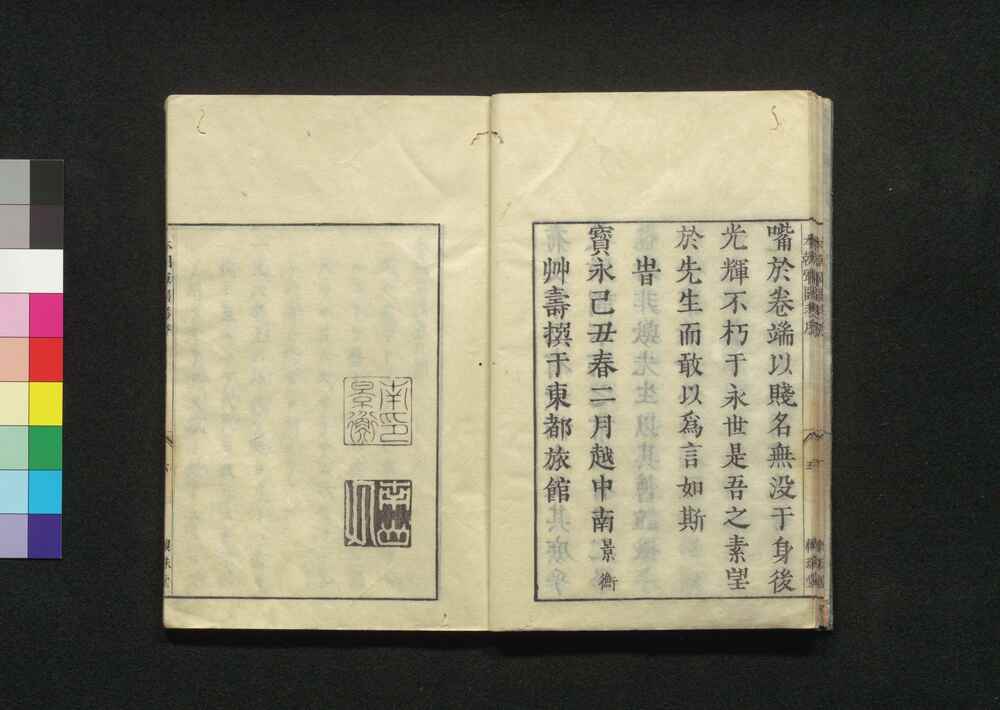 嘴於卷端以賤名無没于身後
光輝不朽于永世是吾之素望
於先生而敢以爲言如斯
旹
寶永己丑春二月越中南景衡
艸壽撰于東都旅館
南景衡印